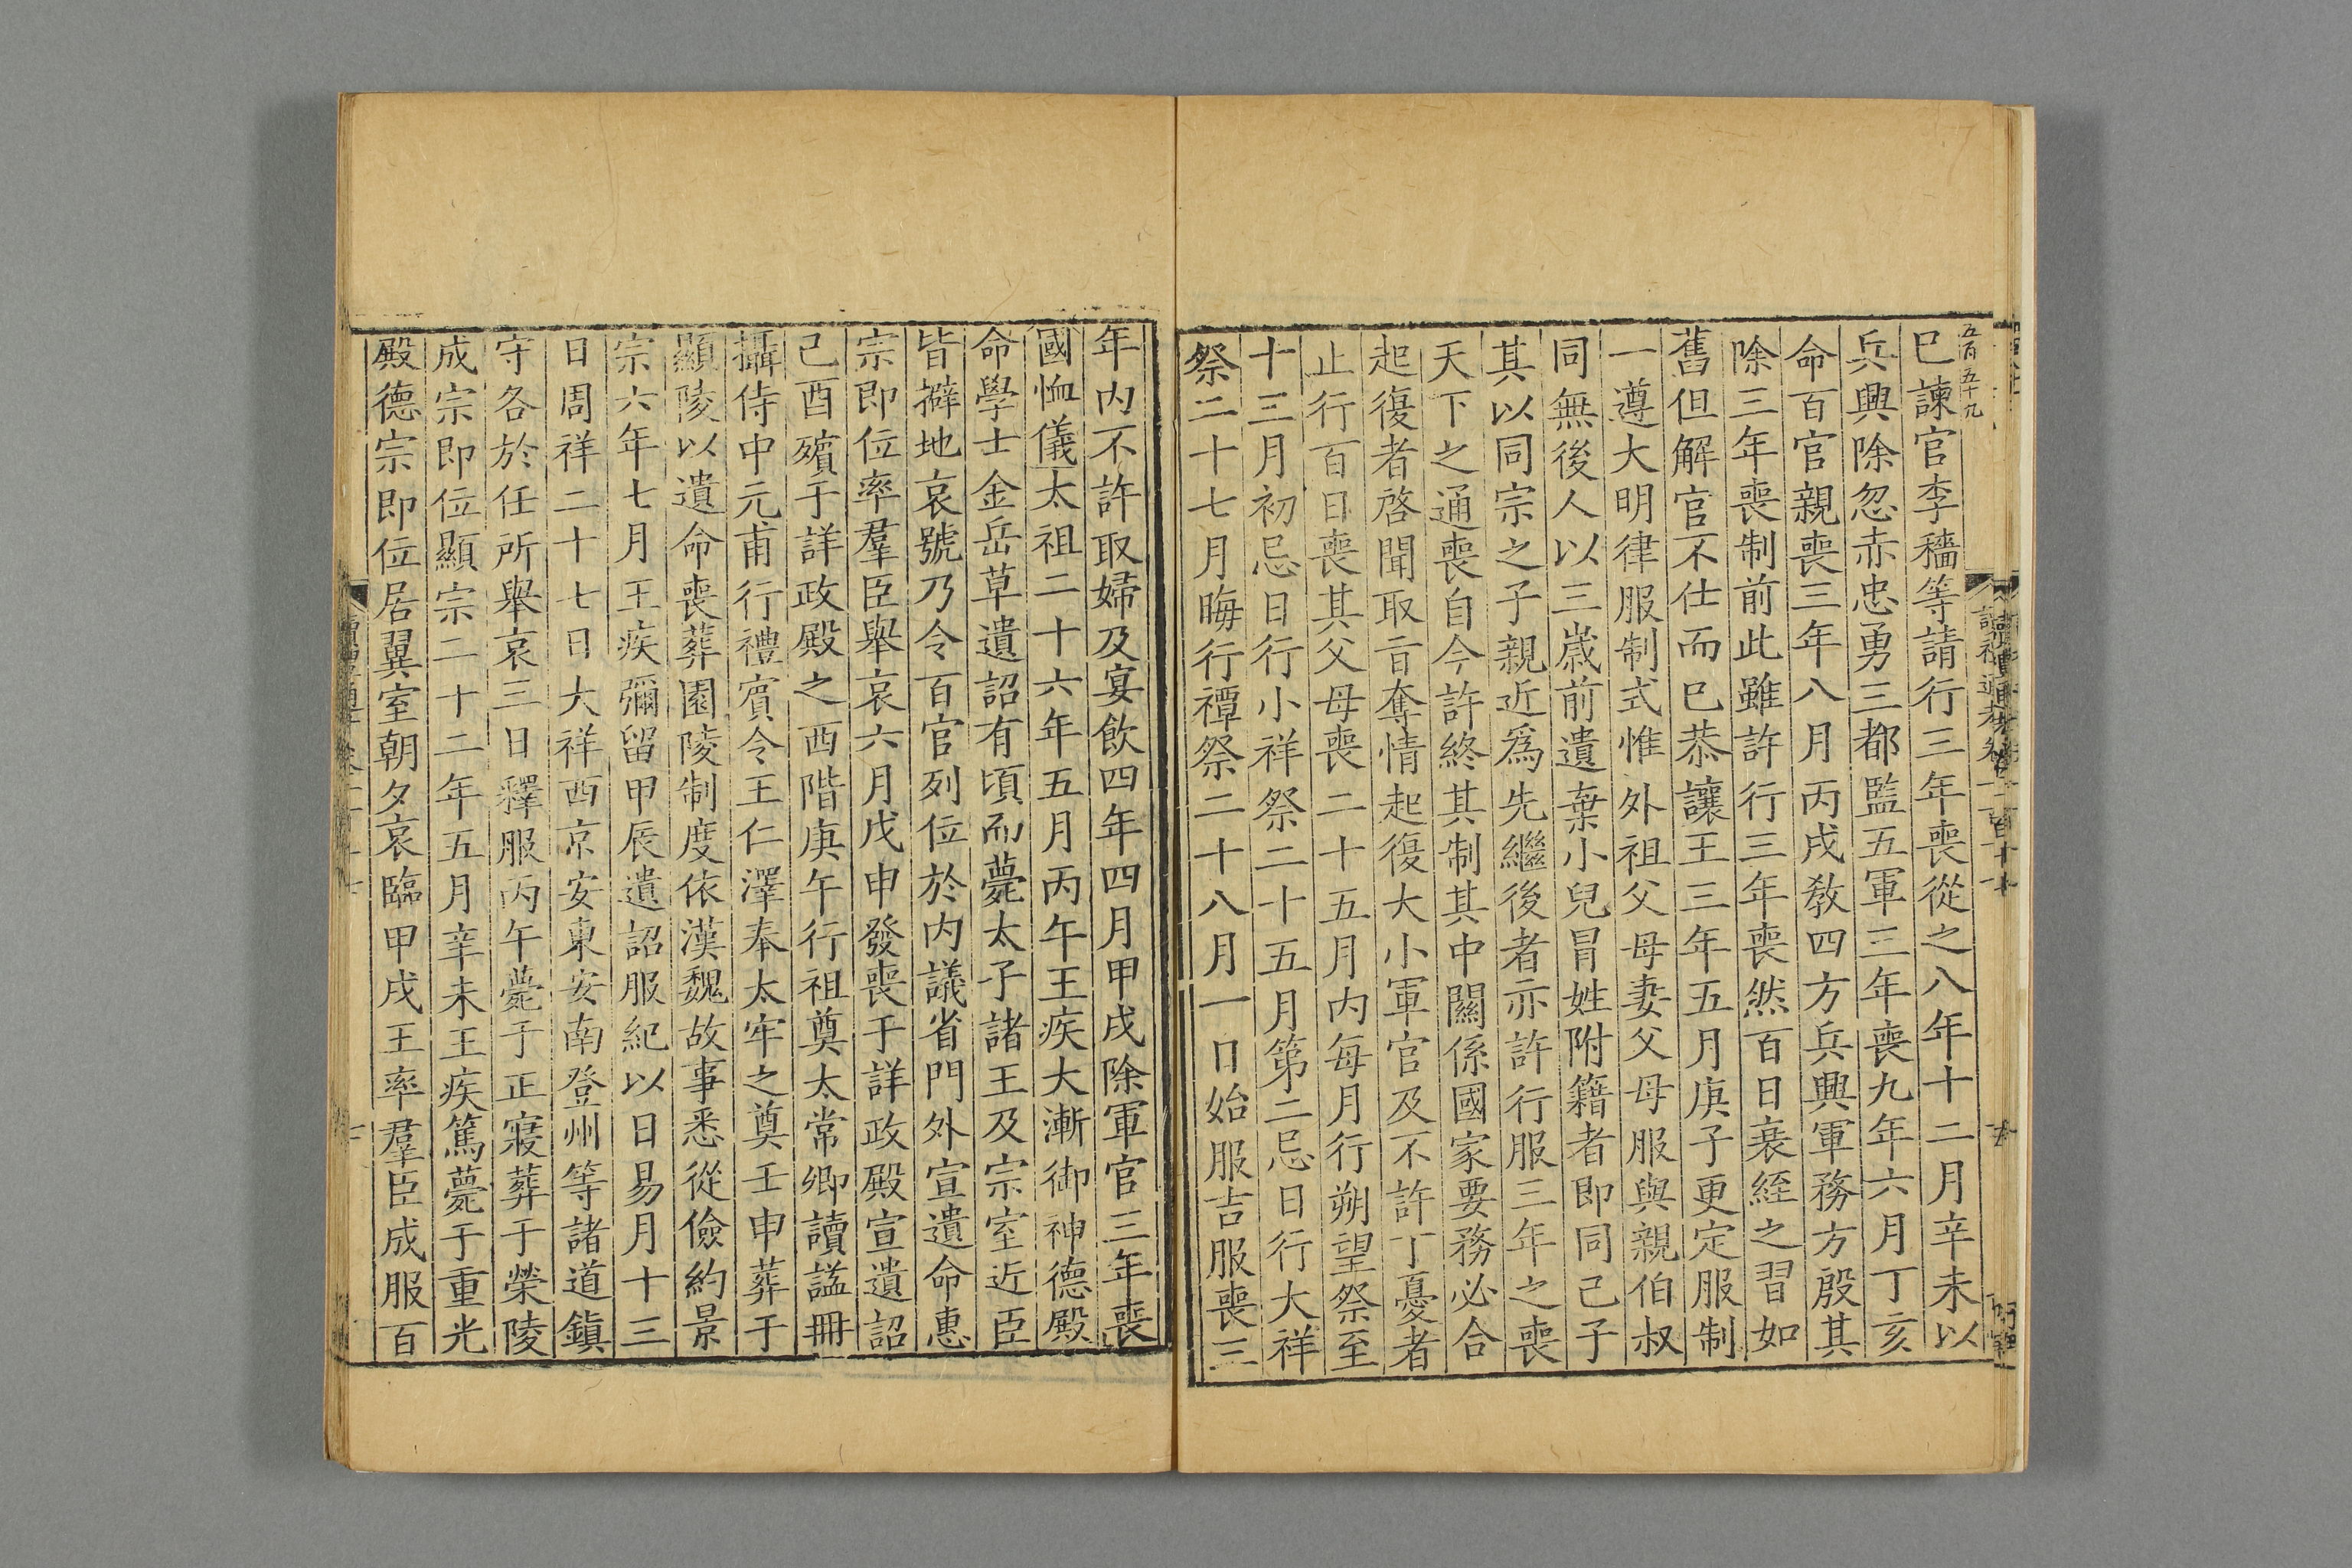 五百五十九
巳諫官李穡等請行三年喪從之八年十二月辛未以
兵興除忽赤忠勇三都監五軍三年喪九年六月丁亥
命百官親喪三年八月丙戌敎四方兵興軍務方殷其
除三年喪制前此雖許行三年喪然百日衰絰之習如
舊但解官不仕而已恭讓王三年五月庚子更定服制
一遵大明律服制式惟外祖父母妻父母服與親伯叔
同無後人以三歲前遺棄小兒冒姓附籍者即同己子
其以同宗之子親近爲先繼後者亦許行服三年之喪
天下之通喪自今許終其制其中關係國家要務必合
起復者啓聞取旨奪情起復大小軍官及不許丁憂者
止行百日喪其父母喪二十五月内每月行朔望祭至
十三月初忌日行小祥祭二十五月第二忌日行大祥
祭二十七月晦行禫祭二十八月一日始服吉服喪三
年内不許取婦及宴飲四年四月甲戌除軍官三年喪
國恤儀太祖二十六年五月丙午王疾大漸御神德殿
命學士金岳草遺詔有頃而薨太子諸王及宗室近臣
皆擗地哀號乃令百官列位於内議省門外宣遺命惠
宗即位率羣臣舉哀六月戊申發喪于詳政殿宣遺詔
己酉殯于詳政殿之西階庚午行祖奠太常卿讀諡冊
攝侍中元甫行禮賓令王仁澤奉太牢之奠壬申葬于
顯陵以遺命喪葬園陵制度依漢魏故事悉從儉約景
宗六年七月王疾彌留甲辰遺詔服紀以日易月十三
日周祥二十七日大祥西京安東安南登州等諸道鎭
守各於任所舉哀三日釋服丙午薨于正寢葬于榮陵
成宗即位顯宗二十二年五月辛未王疾篤薨于重光
殿德宗即位居翼室朝夕哀臨甲戌王率羣臣成服百